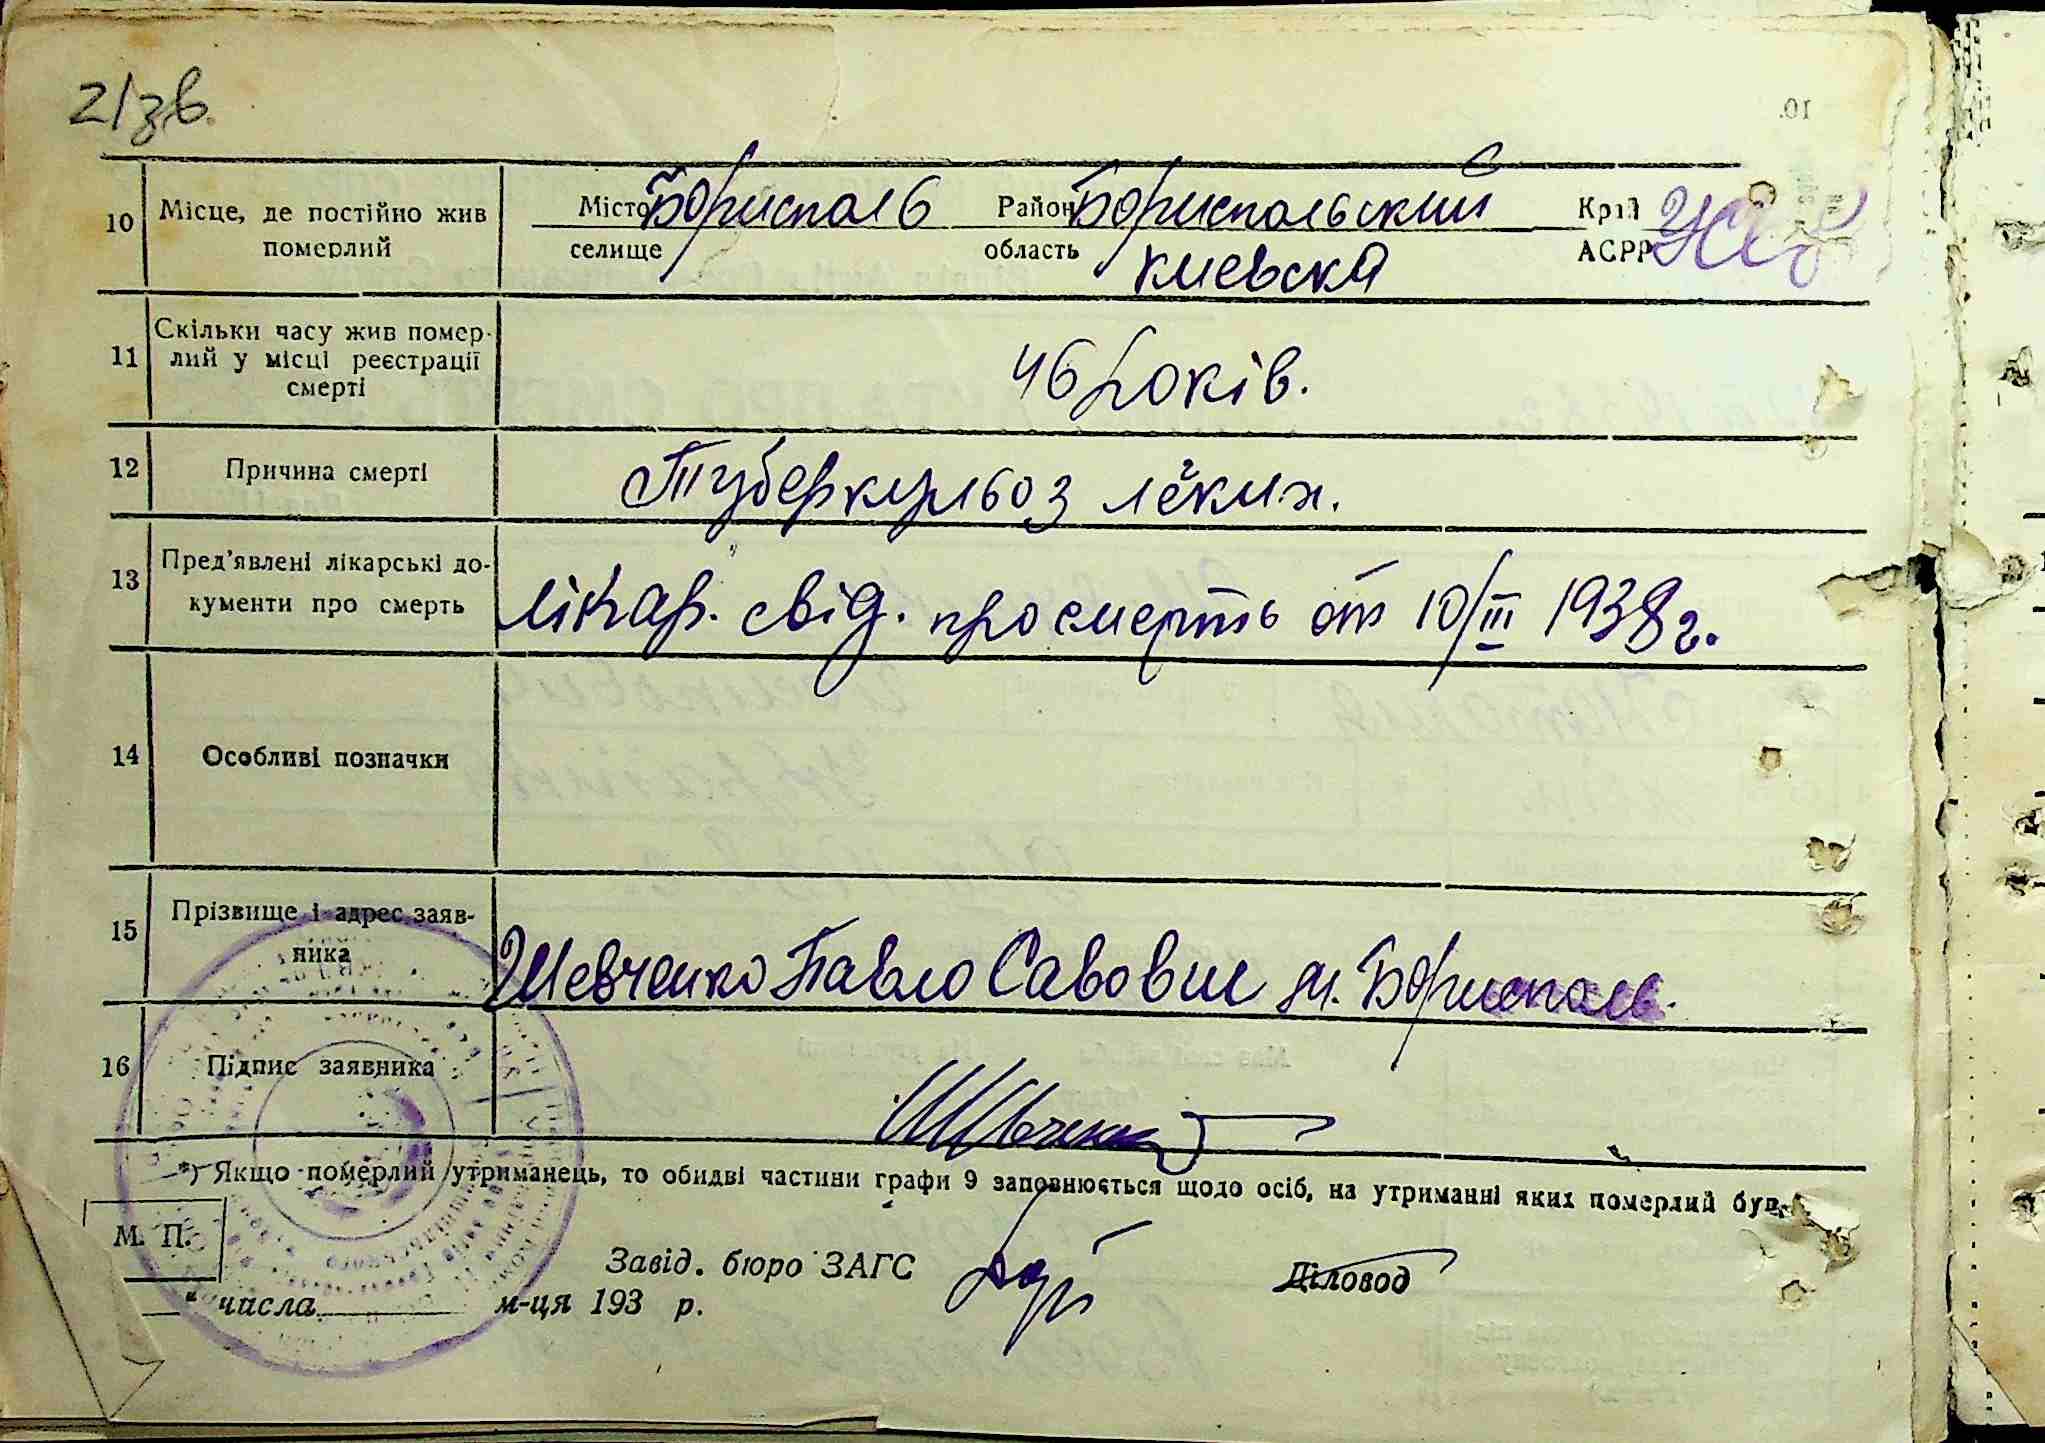 2/зв.
10 Місце, де постійно жив Місто Борисполь Район Бориспольский Край
померлий селище область киевска АСРР
Скільки часу жив помер-
11 лий у місці реєстрації 46 років.
смерті
12 Причина смерті Туберкульоз лёких.
13 Пред'явлені лікарські до-
кументи про смерть лікар. свід. про смерть от 10/III 1938 г.
14 Особливі позначки
15 Прізвище і адрес заяв-
ника Шевченко Павло Савович м. Борисполь.
16 Підпис заявника Шевченко
*) Якщо померлий утриманець, то обидві частини графи 9 заповнюється щодо осіб, на утриманні яких померлий був.
М. П.
Завід. бюро ЗАГС Діловод
" числа м-ця 193 р.